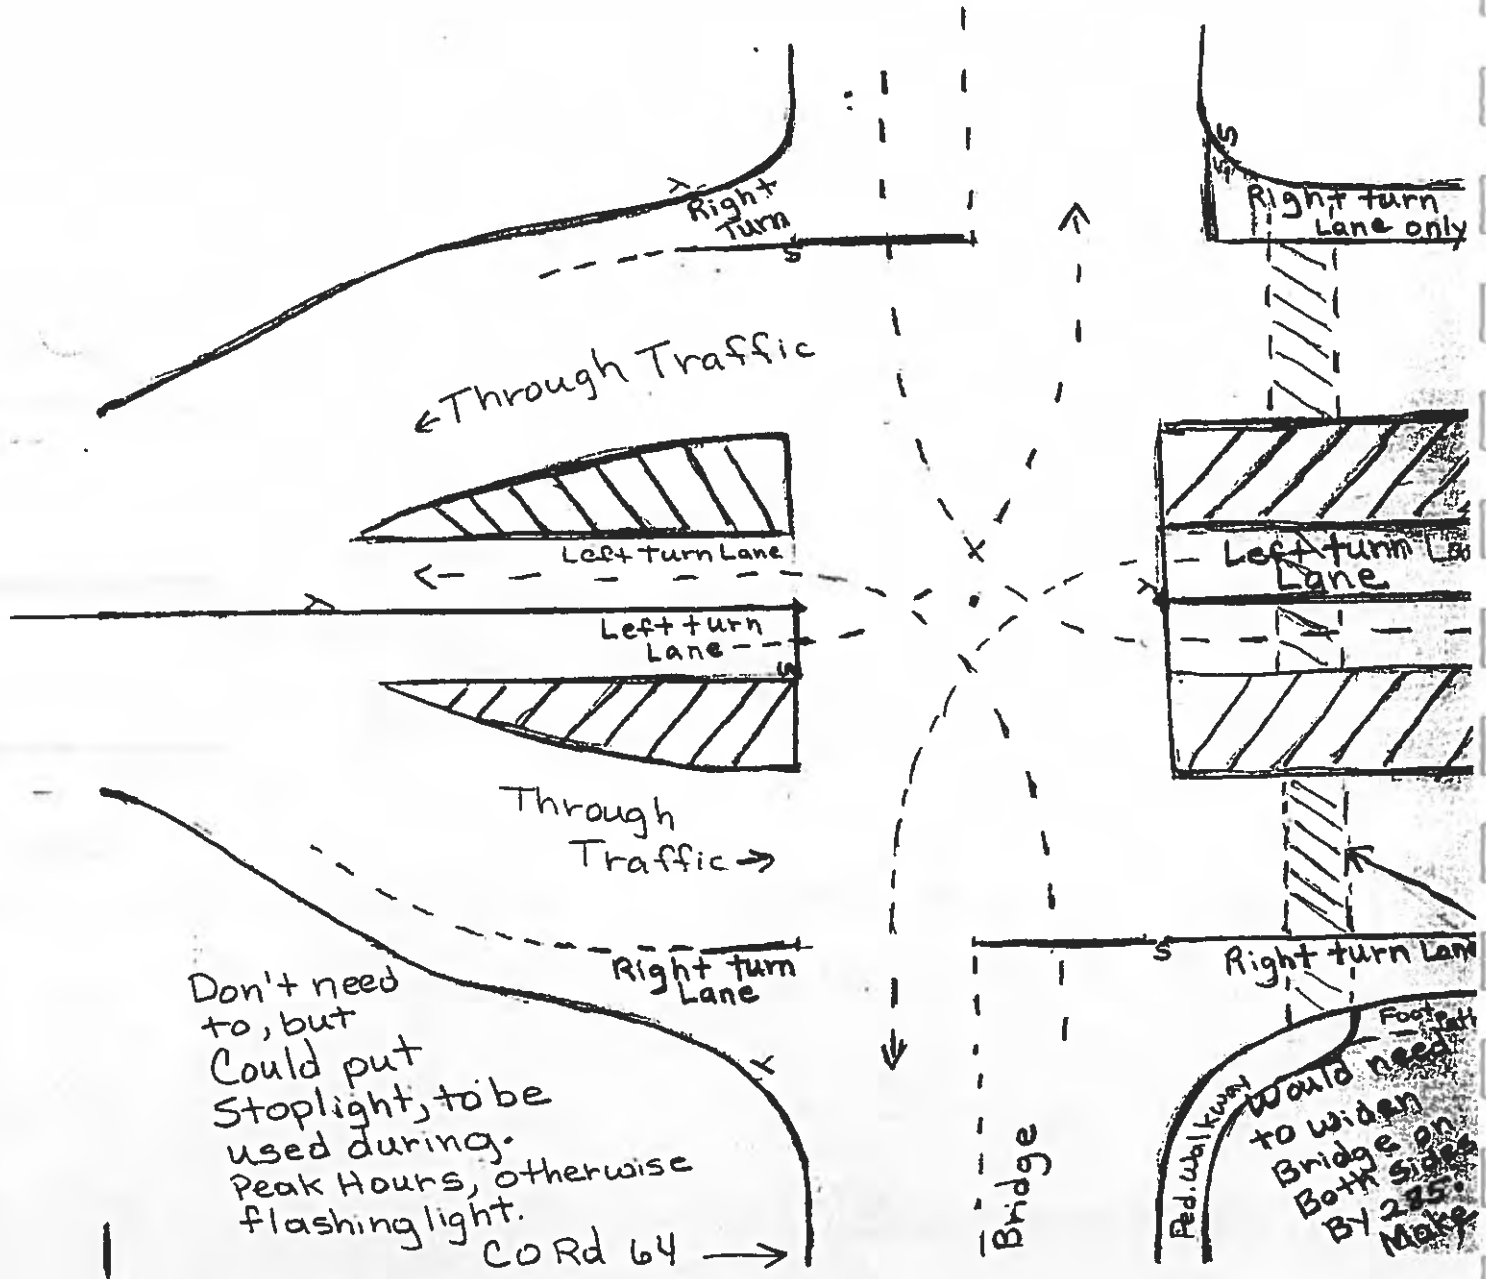 S
Right
Turn
Right turn
Lane only
S
←Through Traffic
Left Turn Lane
Left turn
Lane
Left turn
Lane
S
Through
Traffic→
Right turn
Lane
S
Right turn Lane
Foot Path
Don't need
to, but
Could put
Stoplight, to be
used during.
Peak Hours, otherwise
flashing light.
CO Rd 64
Bridge
Ped. Walkway
Would need
to widen
Bridge on
Both sides
By 285.
Make